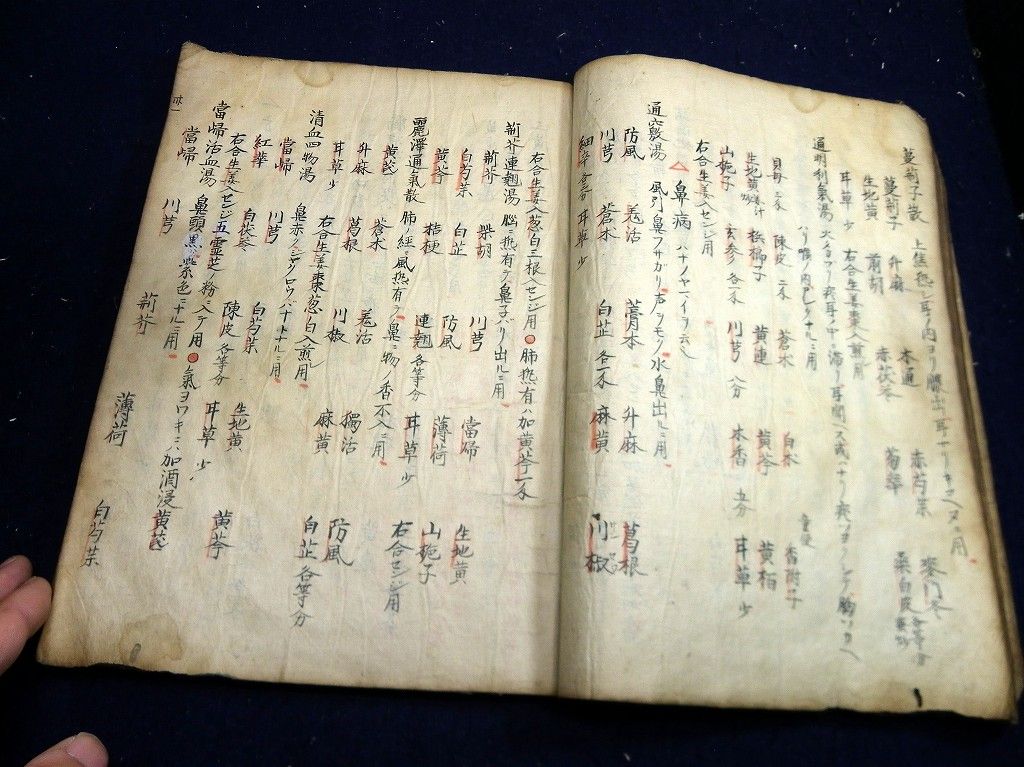 蔓荊子散 上焦熱シテ耳ノ内ヨリ膿出耳ナリキコヘヌニ用
蔓荊子 升麻 木通 赤芍薬 麥門冬
生地黄 前胡 赤茯苓 菊華 桑白皮 各等分
耳草 少 右合生姜棗入煎用
通明利氣湯 痰耳ノ中ニ滞リ耳聞ヘス或ハナリ痰 胸ツカヘ
ハリ喉ノ内 ナルニ用
貝母 二匁 陳皮 二匁 蒼朮 白朮 香附子 童便
生地黄 姜汁 檳榔子 黄連 黄芩 黄栢
山梔子 玄参 各一匁 川芎 八分 木香 五分 耳草 少
右合生姜入センジ用
△ 鼻病 ハナノヤマイヲ云也
通竅湯 風引鼻フサカリ声ヲモク水鼻出ルニ用
防風 羌活 藁本 升麻 葛根
川芎 蒼朮 白芷 各一匁 麻黄 川椒
細辛 各三分 耳草 少
右合生姜入葱白三根入センジ用 ●肺熱有ハ加黄芩一匁
荊芥連翹湯 腦ニ熱有テ鼻子バリ出ルニ用
荊芥 柴胡 川芎 當帰 生地黄
白芍薬 白芷 防風 薄荷 山梔子
黄芩 桔梗 連翹 各等分 耳草 少 右合センジ用
麗澤通氣散 肺ノ經ニ風熱有テ鼻ニ物ノ香不入ニ用
黄芪 蒼朮 羌活 獨活 防風
升麻 葛根 川椒 麻黄 白芷 各等分
耳草 少 右合生姜棗葱ノ白入煎用
清血四物湯 鼻赤ノシャクロウバナトナルニ用
當帰 川芎 白芍薬 生地黄 黄芩
紅華 白茯苓 陳皮 各等分 耳草 少
右合生姜入センジ五霊芝ノ粉ニ入テ用 ●氣ヨワキニハ加酒浸黄芪
當帰活血湯 鼻頭黒紫色ニナルニ用
當帰 川芎 荊芥 薄荷 白芍薬